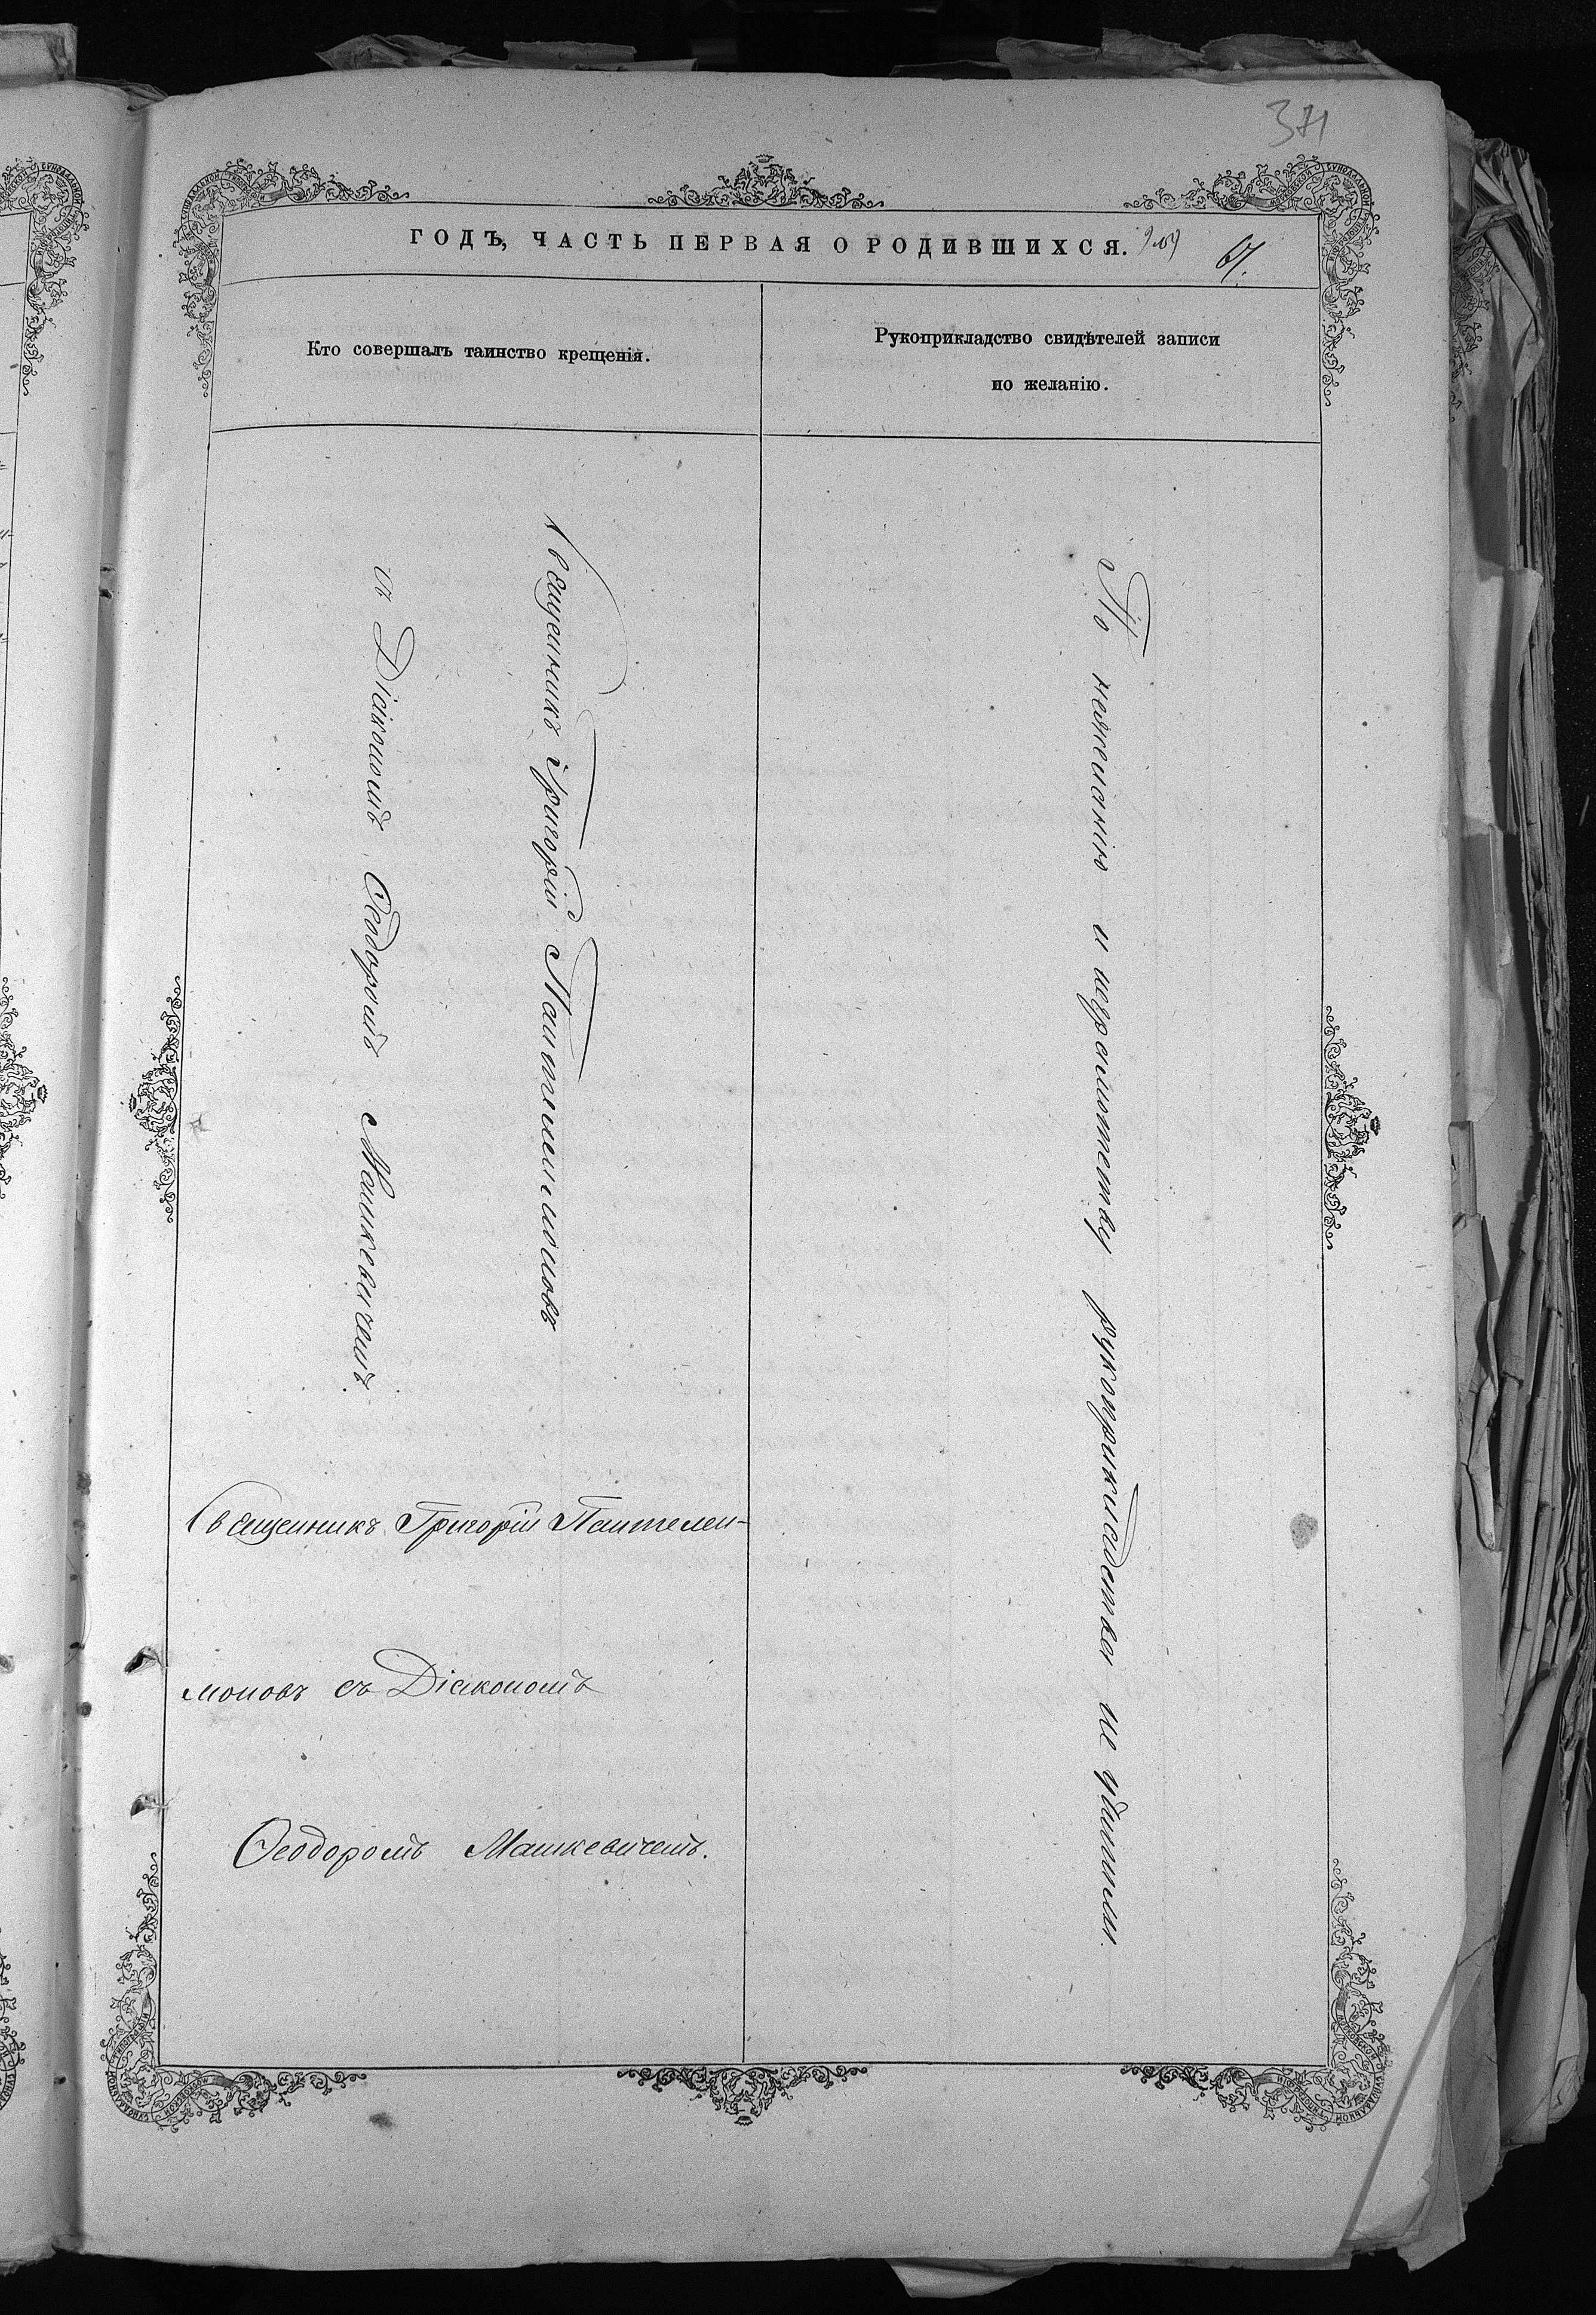 371
ГОДЪ, ЧАСТЬ ПЕРВАЯ О РОДИВШИХСЯ.
67.
Кто совершалъ таинство крещенія.
Рукоприкладство свидѣтелей записи
по желанію.
Священникъ Григорій Пантелеимоновъ
съ Діакономъ Ѳеодоромъ Машкевичемъ.
Священникъ Григорій Пантелеи-
моновъ съ Діакономъ
Ѳеодоромъ Машкевичемъ.
По нежеланію и неграмотству рукоприкладства не учинили.